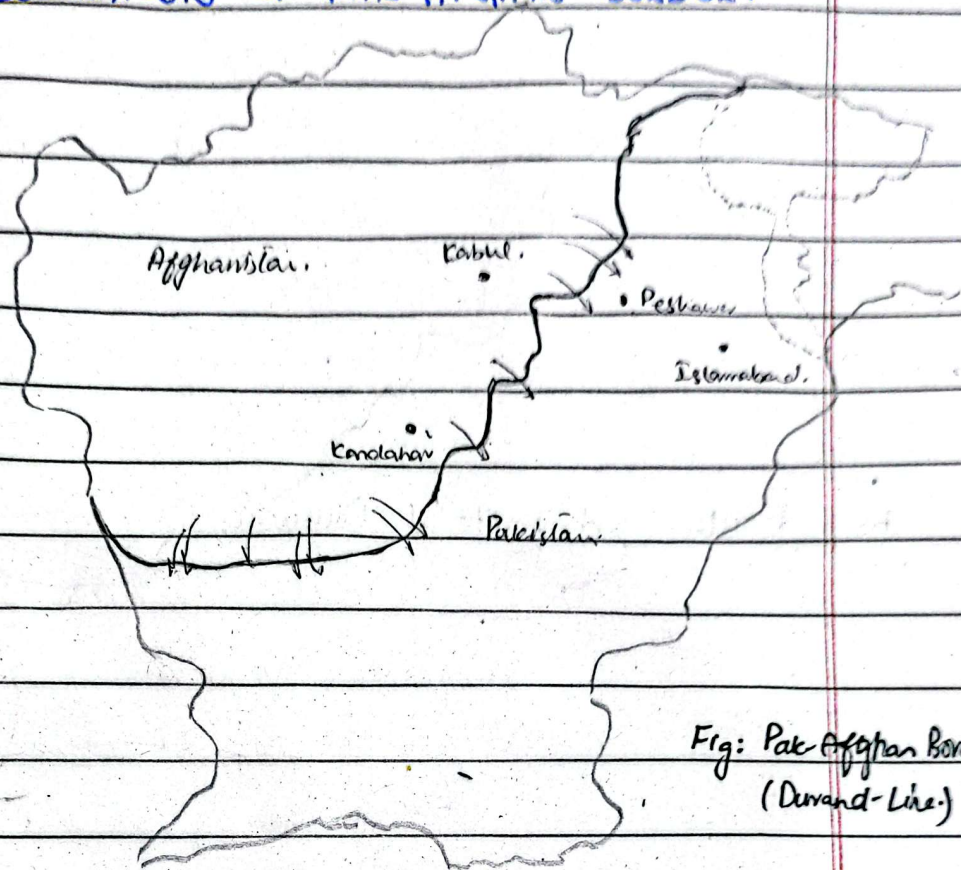 Afghanistan.
Kabul.
Peshawar
Islamabad.
Kandahar
Pakistan.
Fig: Pak-Afghan Bor
(Durand-Line.)